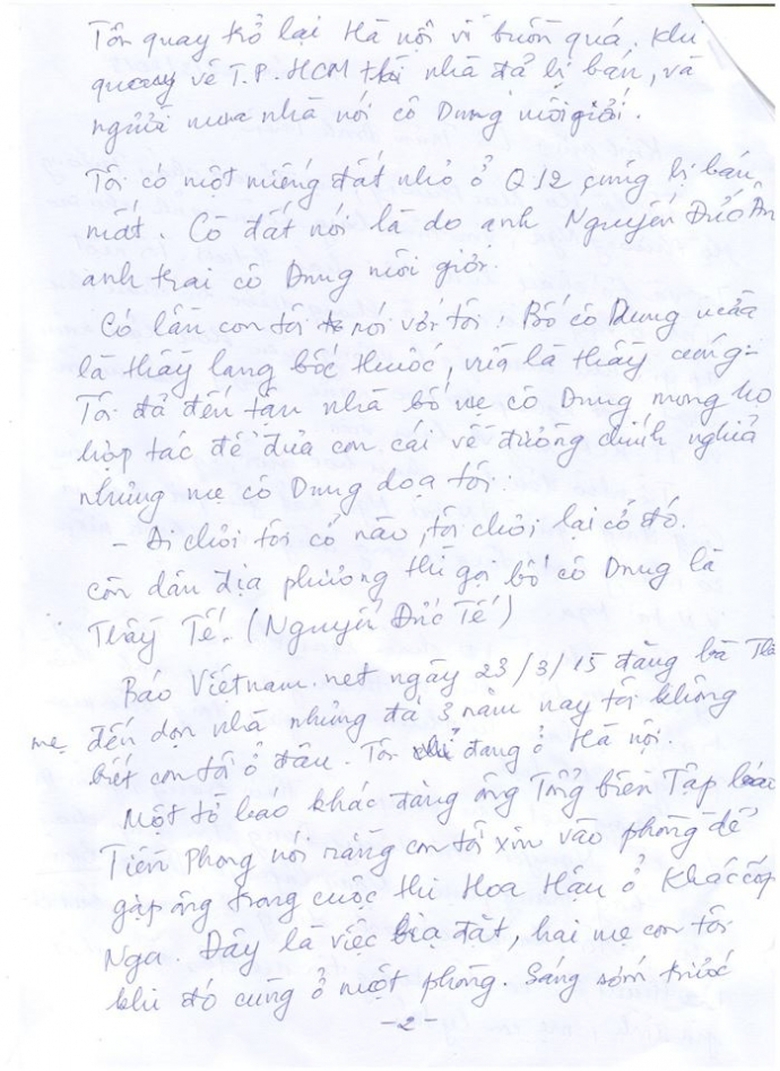 Tôi quay trở lại Hà nội vì buồn quá. Khi
quay về T.P. HCM thì nhà đã bị bán, và
người mua nhà nói cô Dung môi giới.
Tôi có một miếng đất nhỏ ở Q12 cũng bị bán
mất. Cò đất nói là do anh Nguyễn Đức Ân
anh trai cô Dung môi giới.
Có lần con tôi nói với tôi: Bố cô Dung vừa
là thầy lang bốc thuốc, vừa là thầy cúng.
Tôi đã đến tận nhà bố mẹ cô Dung mong họ
hợp tác để đưa con cái về đường chính nghĩa
nhưng mẹ cô Dung dọa tôi.
- Ai chơi tôi cỏ nào, tôi chơi lại cỏ đó.
còn dân địa phương thì gọi bố cô Dung là
Thầy Tế. (Nguyễn Đức Tế)
Báo Vietnam.net ngày 23/3/15 đăng bà
mẹ đến dọn nhà nhưng đã 3 năm nay tôi không
biết con tôi ở đâu. Tôi đang ở Hà nội.
Một tờ báo khác đăng ông Tổng biên Tập báo
Tiền Phong nói rằng con tôi xin vào phòng để
gặp ông trong cuộc thi Hoa Hậu ở
Nga. Đây là việc bịa đặt, hai mẹ con tôi
khi đó cùng ở một phòng. Sáng sớm trước
-2-